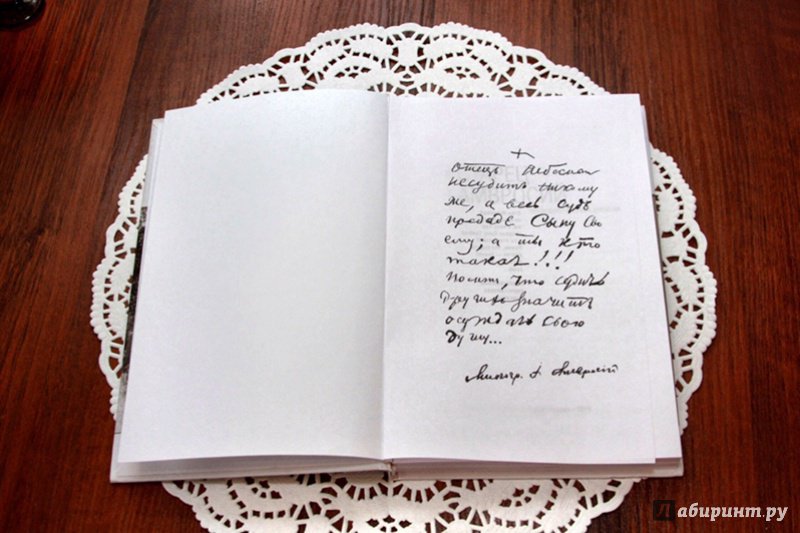 Отецъ Небесный
несудитъ никому
же, а весь судъ
предаде Сыну Сво
ему; а ты кто
такая!!!
Помни, что судить
других значитъ
осуждать свою
душу...
Лабиринт.ру